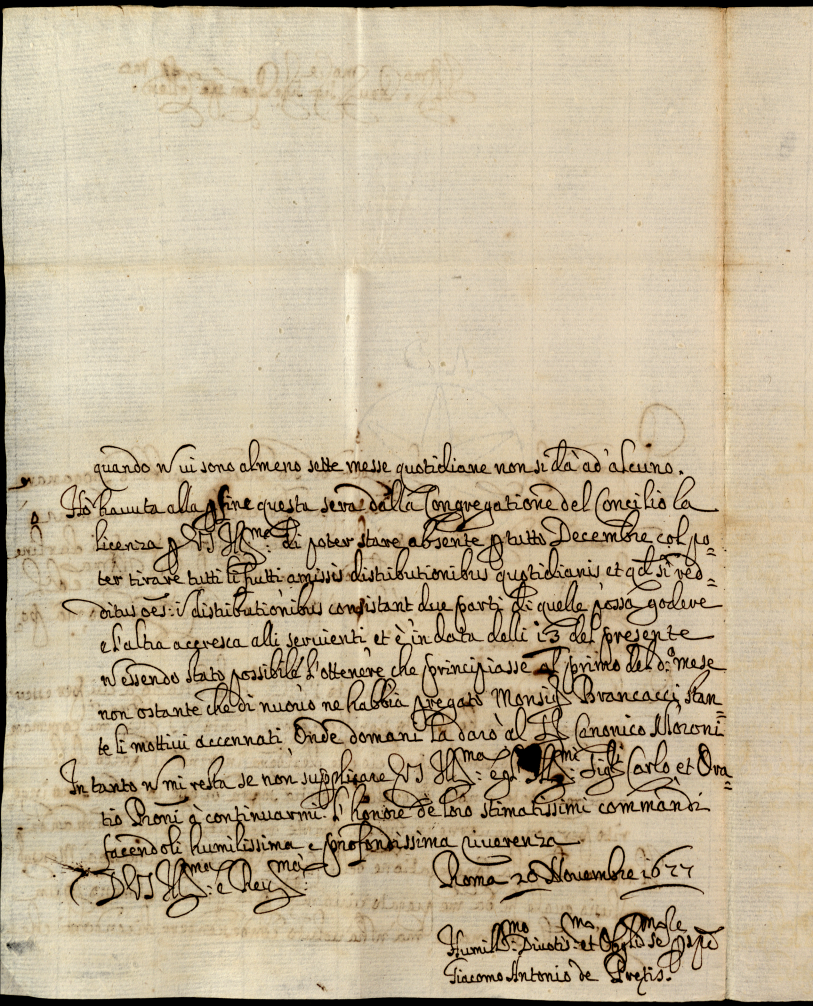 quando ñ ui sono almeno sette messe quotidiane non si dà ad' alcuno.
Hò hauuta alla fine questa sera dalla Congregatione del Concilio la
licenza p VS Ill:ma di poter stare absente p tutto Decembre col po=
ter tirare tutti li frutti amissis distributionibus quotidianis et qd si red=
ditus oẽs i distributionibus consistant due parti di quelle possa godere
e l'altra accresca alli seruienti et è in data delli 13 del presente
ñ essendo stato possibile l'ottenere che principiasse al primo del d:o mese
non ostante che di nuouo ne habbia pregato Monsig Brancacci, stan=
te li mottiui accennati. Onde domani la darò al Canonico Moroni
In tanto ñ mi resta se non supplicare VS Ill:ma e gl' Ill:mi Sig:ri Carlo et Ora=
tio à continuarmi l'honore de loro stimatissimi commandi
facendoli humilissima e profondissima riuerenza
D VS Ill:ma e Reu:ma
Roma 20 Nouembre 1677
Humil:mo Diuotis:mo et Oblig:mo Se
Giacomo Antonio de Pretis.